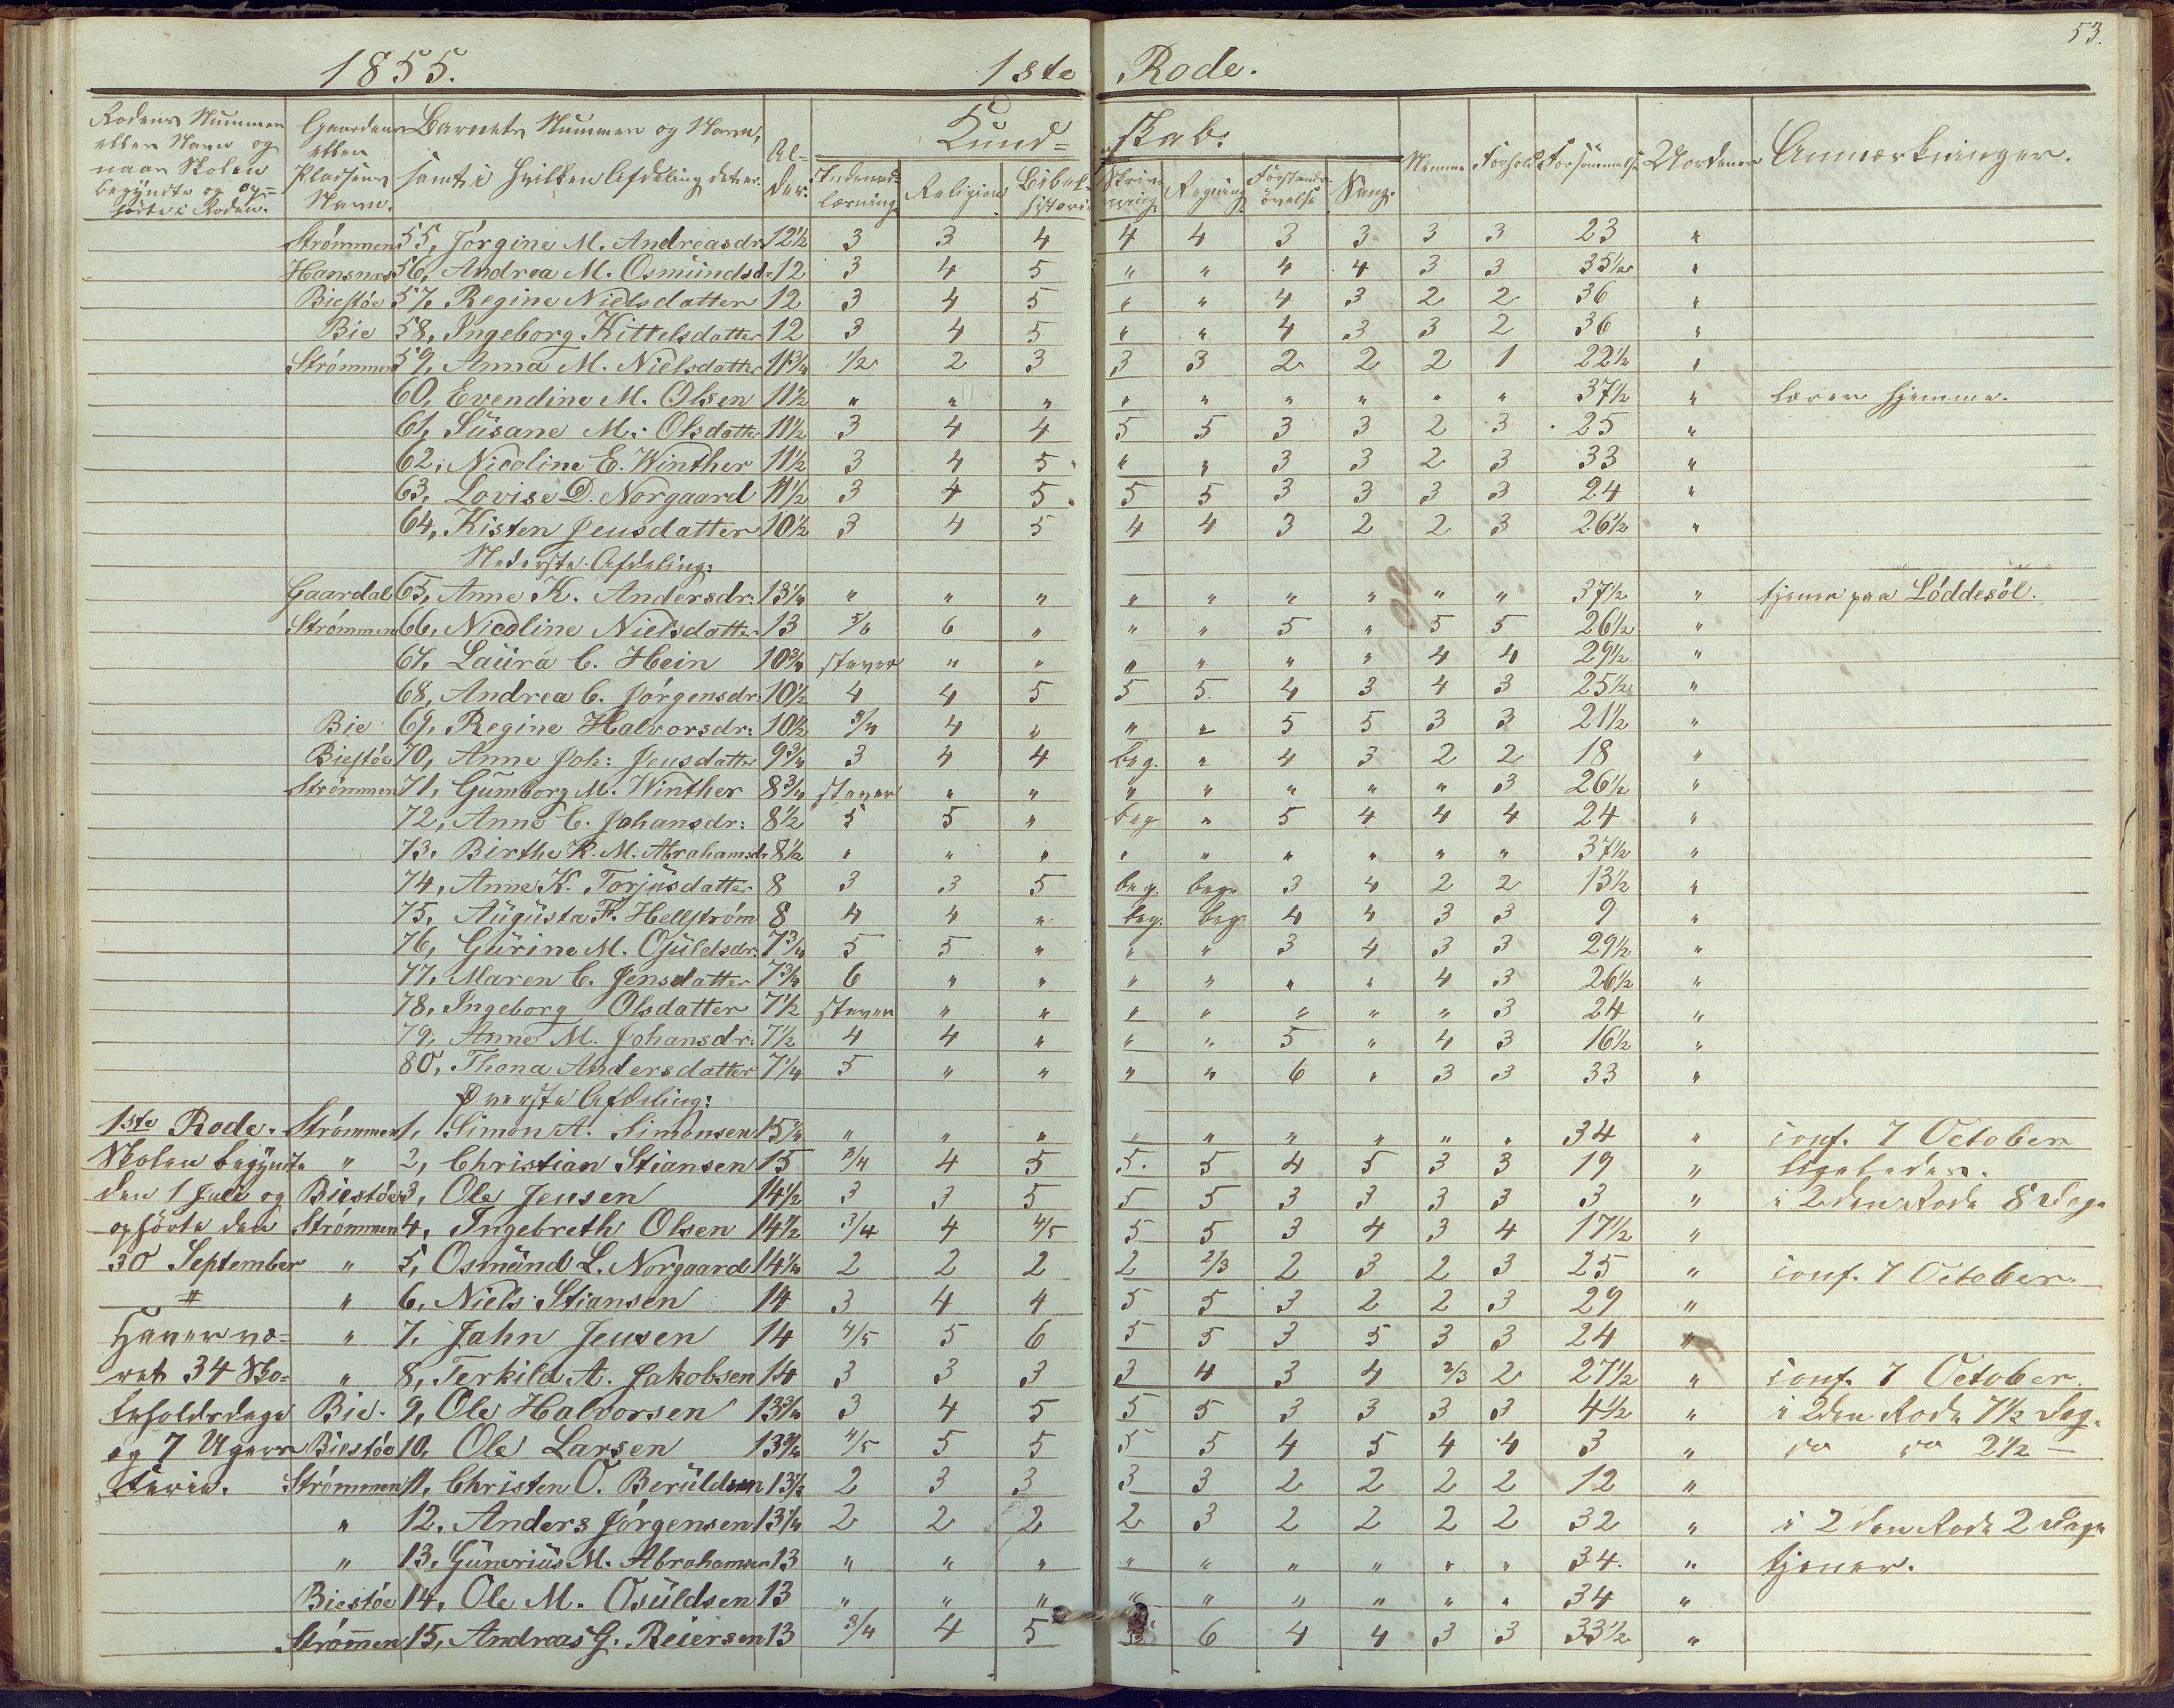 53.
1855. 1ste Rode.
Rodens Nummer eller Navn og naar Skolen begyndte og op=hörte i Roden. Gaardens eller Pladsens Navn. Barnets Nummer og Navn, samt i hvilken Afdeling det er. Al-der. Kund=skab. Nemme Forhold Forsömmelse Anmærkninger.
Indenad-læsning Religion Bibel-historie Skriv-ning Regning Forstands-övelse Sang.
Strömmen 55, Jörgine M. Andreasdr 12½ 3 3 4 4 4 3 3 3 3 23 "
Hansnæs 56, Andrea M. Osmündsdr 12 3 4 5 " " 4 4 3 3 35½ "
Biestöe 57, Regine Nielsdatter 12 3 4 5 " " 4 3 2 2 36 "
Bie 58, Ingeborg Kittelsdatter 12 3 4 5 " " 4 3 3 2 36 "
Strömmen 59, Anna M. Nielsdatter 11¾ ½ 2 3 3 3 2 2 2 1 22½ "
60, Evendine M. Olsen 11½ " " " " " " " " " 37½ " lærer hjemme.
61, Süsane M. Olsdatter 11½ 3 4 4 5 5 3 3 2 3 25 "
62, Nicoline E. Winther 11½ 3 4 5 " " 3 3 2 3 33 "
63, Lovise D. Norgaard 11½ 3 4 5 5 5 3 3 3 3 24 "
64, Kisten Jensdatter 10½ 3 4 5 4 4 3 2 2 3 26½ "
Nederste Afdeling:
Gaardal 65, Anne K. Andersdr: 13¼ " " " " " " " " " 37½ " tjener paa Löddesöl.
Strömmen 66, Nicoline Nielsdatter 13 5/6 6 " " " 5 " 5 5 26½ "
67, Laüra C. Hein 10¾ staver " " " " " " 4 4 29½ "
68, Andrea C. Jörgensdr: 10½ 4 4 5 5 5 4 3 4 3 25½ "
Bie 69, Regine Halvorsdr: 10½ 3/4 4 " " " 5 5 3 3 21½ "
Biestöe 70, Anne Joh: Jensdatter 9¾ 3 4 4 beg. " 4 3 2 2 18 "
Strömmen 71, Gumborg M. Winther 8¾ staver " " " " " " " 3 26½ "
72, Anne C. Johansdr: 8½ 5 5 " beg " 5 4 4 4 24 "
73, Birthe K. M. Abrahamsdr 8½ " " " " " " " " " 37½ "
74, Anne K. Torjüsdatter 8 3 3 5 beg. beg. 3 4 2 2 13½ "
75, Aügüsta F. Hellström 8 4 4 " beg. beg. 4 4 3 3 9 "
76, Gürine M. Osüldsdr: 7¾ 5 5 " " " 3 4 3 3 29½ "
77, Maren C. Jensdatter 7¾ 6 " " " " " " 4 3 26½ "
78, Ingeborg Olsdatter 7½ staver " " " " " " " 3 24 "
79, Anne M. Johansdr: 7½ 4 4 " " " 5 " 4 3 16½ "
80, Thona Andersdatter 7¼ 5 " " " " 6 " 3 3 33 "
Överste Afdeling:
1ste Rode. Strömmen 1, Simon A. Simonsen 15¼ " " " " " " " " " 34 " conf. 7 October
Skolen begyndte " 2, Christian Stiansen 15 3/4 4 5 5 5 4 5 3 3 19 " ligeledes.
den 1 Juli og Biestöe 3, Ole Jensen 14½ 3 3 5 5 5 3 3 3 3 3 " i 2den Rode 8 Dage
ophörte den Strömmen 4, Ingebreth Olsen 14½ 3/4 4 4/5 5 5 3 4 3 4 17½ "
30 September " 5, Osmünd L. Norgaard 14¼ 2 2 2 2 2/3 2 3 2 3 25 " conf. 7 October.
# " 6, Niels Stiansen 14 3 4 4 5 5 3 2 2 3 29 "
Haver væ= " 7, Jahn Jensen 14 4/5 5 6 5 5 3 5 3 3 24 "
ret 34 Sko= " 8, Terkild A. Jakobsen 14 3 3 3 3 4 3 4 2/3 2 27½ " conf. 7 October.
leholdsdage Bie. 9, Ole Halvorsen 13¾ 3 4 5 5 5 3 3 3 3 4½ " i 2den Rode 7½ Dag.
og 7 Ugers Biestöe 10, Ole Larsen 13¾ 4/5 5 5 5 5 4 5 4 4 3 " do do 2½ —
Ferie. Strömmen 11, Christen O. Berüldsen 13½ 2 3 3 3 3 2 2 2 2 12 "
" 12, Anders Jörgensen 13¼ 2 2 2 2 3 2 2 2 2 32 " i 2den Rode 2 Dage
" 13, Günerius M. Abrahamsen 13 " " " " " " " " " 34. " tjener.
Biestöe 14, Ole M. Osüldsen 13 " " " " " " " " " 34 "
Strömmen 15, Andreas G. Reiersen 13 3/4 4 5 5 6 4 4 3 3 33½ "